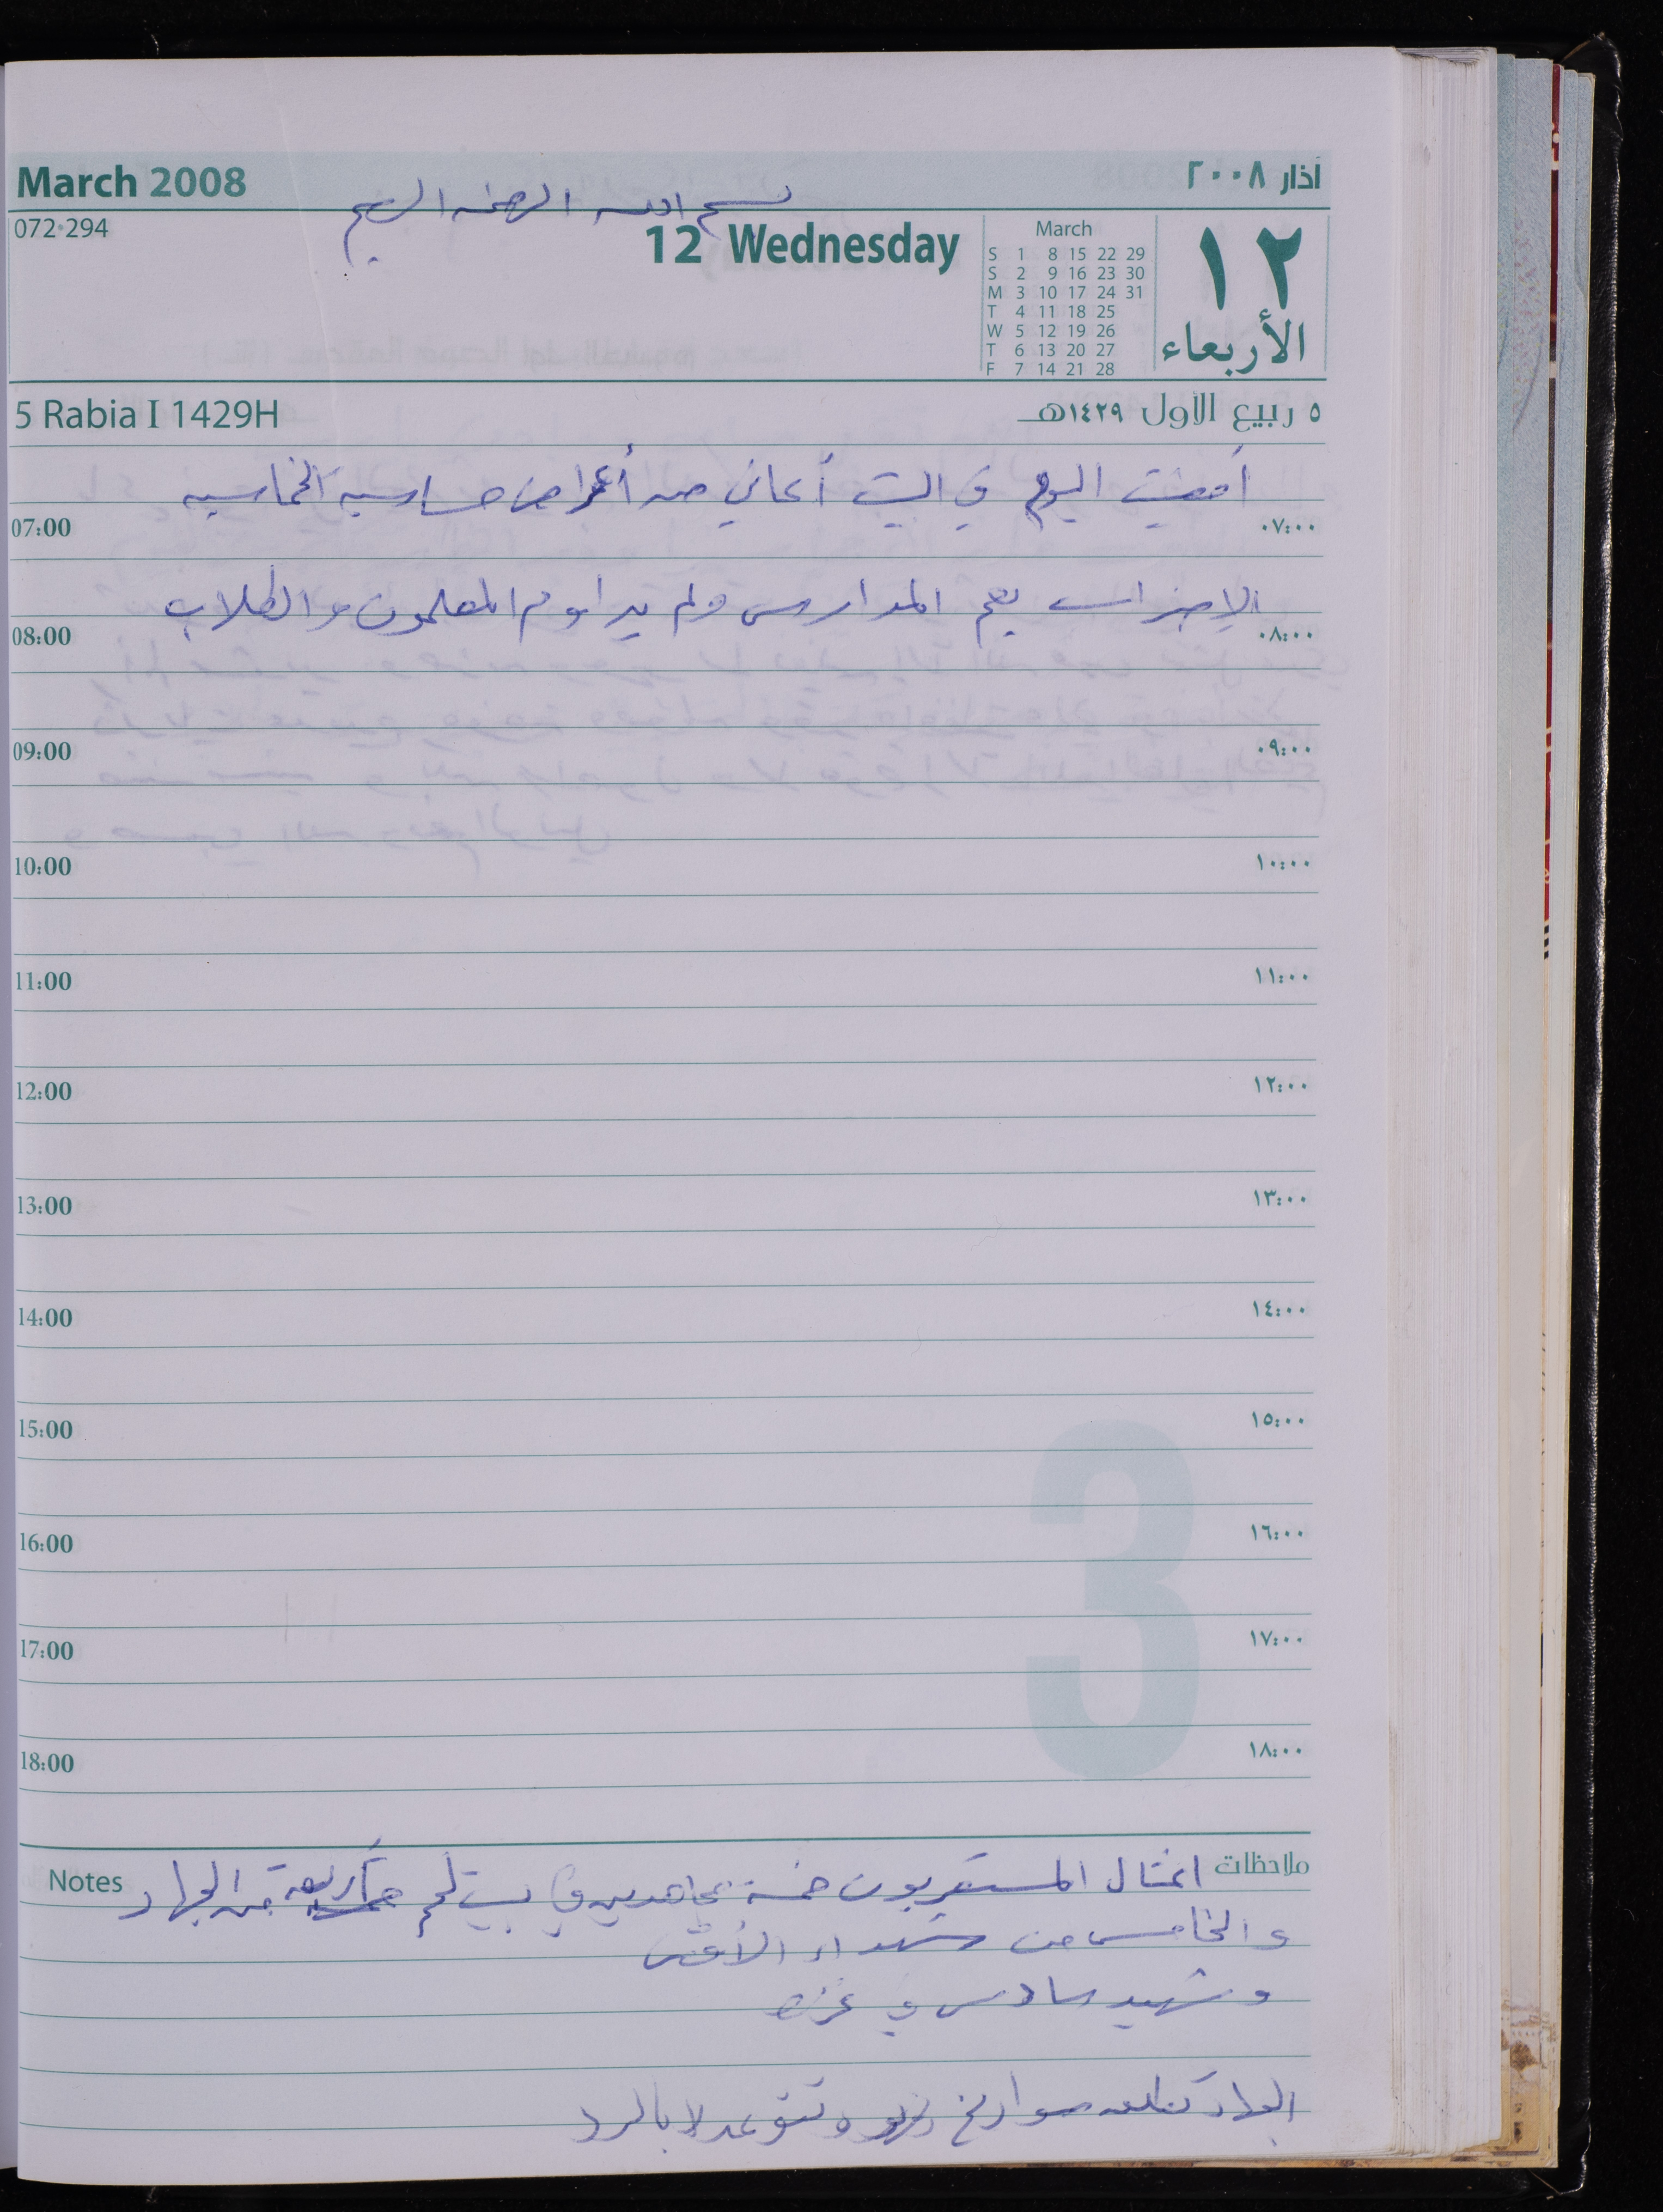 March 2008
آذار ٢٠٠٨
بسم الله الرحمن الرحيم
072-294
12 Wednesday
March
S 1 8 15 22 29
S 2 9 16 23 30
M 3 10 17 24 31
T 4 11 18 25
W 5 12 19 26
T 6 13 20 27
F 7 14 21 28
١٢
الأربعاء
5 Rabia I 1429H
٥ ربيع الأول ١٤٢٩هـ
أمضيت اليوم في البيت أعاني من أعراض حساسية الخماسين
07:00 ٠٧:٠٠
الإضراب يعم المدارس ولم يداوم المعلمون والطلاب
08:00 ٠٨:٠٠
09:00 ٠٩:٠٠
10:00 ١٠:٠٠
11:00 ١١:٠٠
12:00 ١٢:٠٠
13:00 ١٣:٠٠
14:00 ١٤:٠٠
15:00 ١٥:٠٠
16:00 ١٦:٠٠
17:00 ١٧:٠٠
18:00 ١٨:٠٠
3
Notes ملاحظات
اغتال المستعربون خمسة مجاهدين في بيت لحم أربعة من الجهاد
والخامس من شهداء الأقصى
وشهيد سادس في غزة
الجهاد تطلق صواريخ وتتوعد بالرد